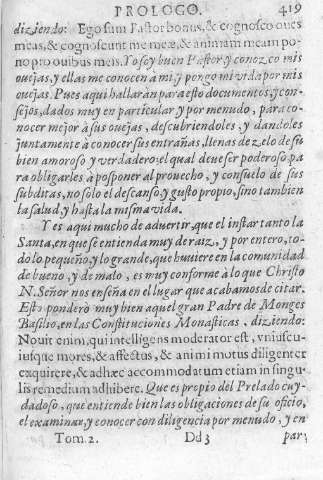 PROLOGO. 419
diziendo: Ego sum Pastor bonus, & cognosco oues
meas, & cognoscunt me meæ, & animam meam po-
no pro ouibus meis. Yo soy buen Pastor, y conozco mis
ouejas, y ellas me conocen a mi, y pongo mi vida por mis
ouejas. Pues aqui hallarán para esto documentos, y con-
sejos, dados muy en particular, y por menudo, para co-
nocer mejor à sus ouejas, descubriendoles, y dandoles
juntamente à conocer sus entrañas, llenas de zelo de su
bien amoroso y verdadero: el qual deue ser poderoso pa-
ra obligarles à posponer al prouecho, y consuelo de sus
subditas, no solo el descanso, y gusto propio, sino tambien
la salud, y hasta la misma vida.
Y es aqui mucho de advertir, que el instar tanto la
Santa, en que se entienda muy de raiz, y por entero, to-
do lo pequeño, y lo grande, que huviere en la comunidad
de bueno, y de malo, es muy conforme à lo que Christo
N. Señor nos enseña en el lugar que acabamos de citar.
Esto ponderò muy bien aquel gran Padre de Monges
Basilio, en las Constituciones Monasticas, diziendo:
Nouit enim, qui intelligens moderator est, vniuscu-
iusque mores, & affectus, & animi motus diligenter
exquirere, & adhæc accommodatum etiam in singu-
lis remedium adhibere. Que es propio del Prelado cuy-
dadoso, que entiende bien las obligaciones de su oficio,
el examinar, y conocer con diligencia por menudo, y en
Tom. 2. Dd 3 par-